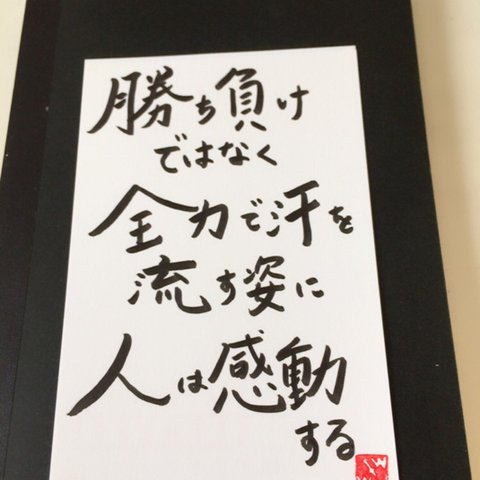 勝ち負け
ではなく
全力で汗を
流す姿に
人は感動
する